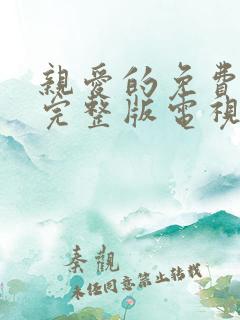 親愛的免費
完整版電視
秦觀
未任同意禁止转载